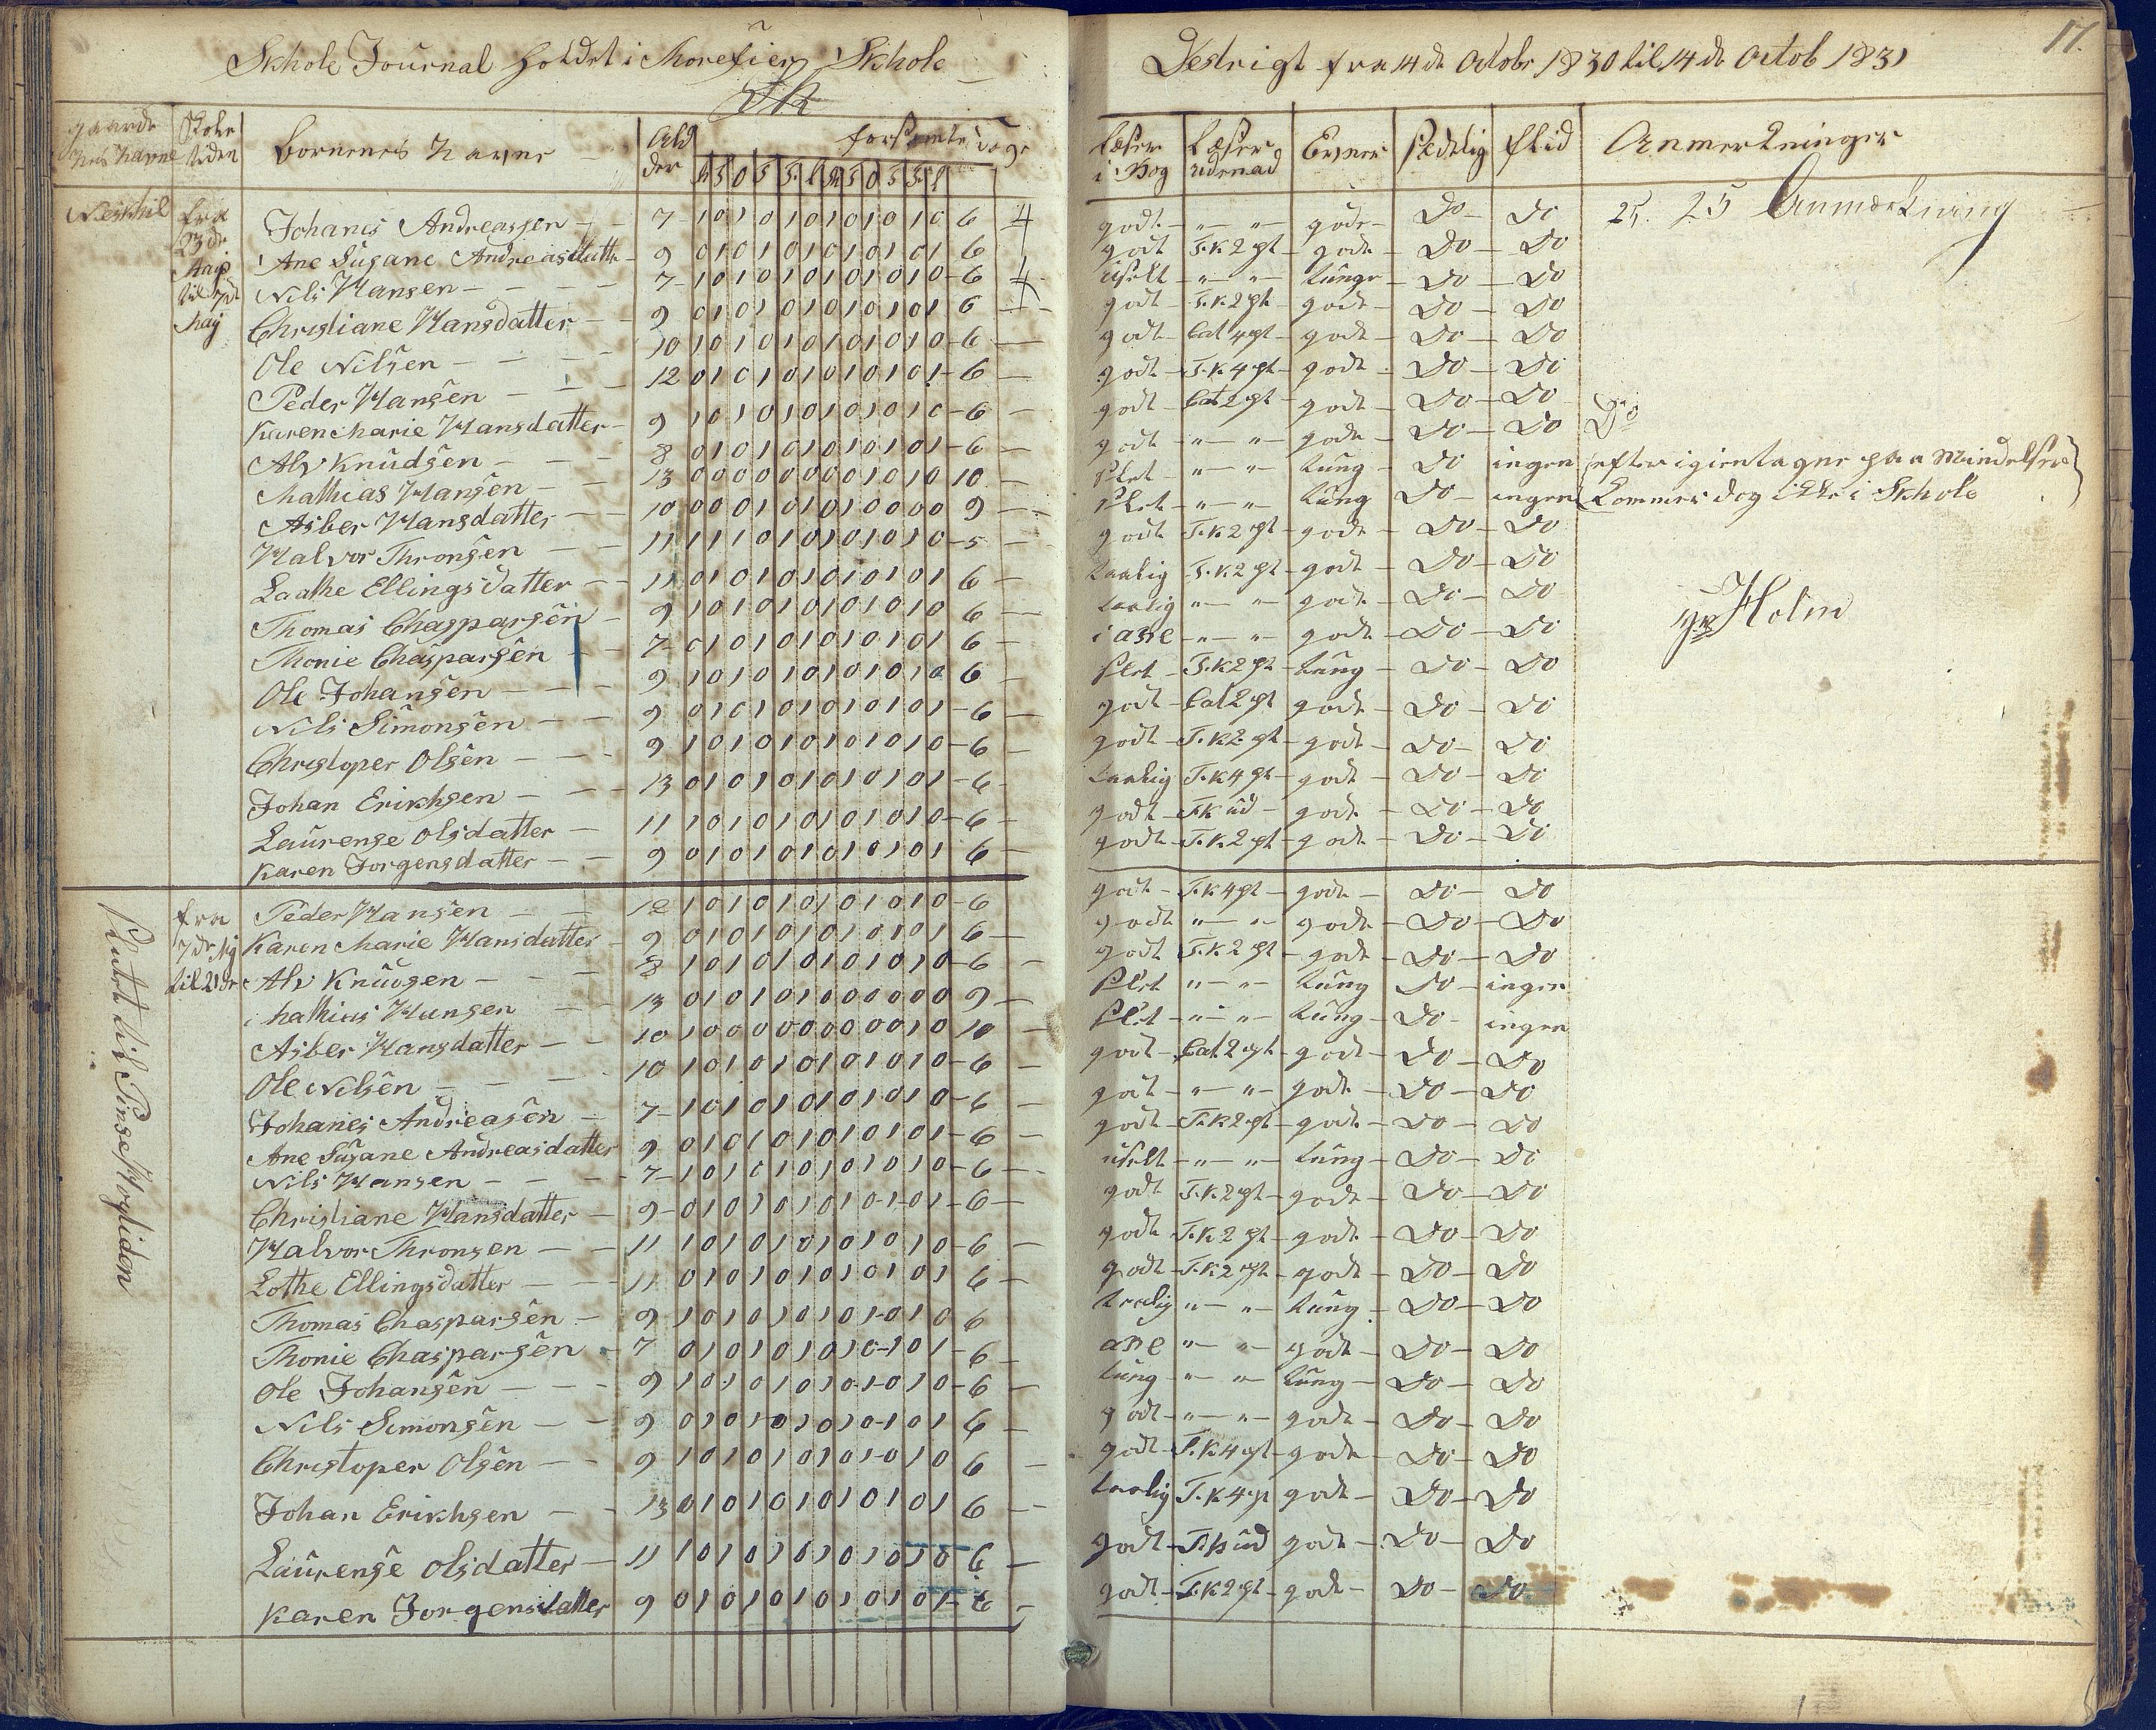 Skhole Journal holdet i Morefier Skhole Destrigt fra 14de Octobr 1830 til 14de Octob 1831 17.
gaarde nes Navne Skole tiden Bornenes Navne Ald der forsomte Dage Læser i Bog Læser udenad Evner sædelig flid Anmerkninger
M S O S T F L M S O S T F L
Neskhil fra 23de til 7de Maj
Johanes Andreassen 7 1 0 1 0 1 0 1 0 1 0 1 0 6 4 godt " " gode Do Do 25 Anmerkning
Ane Susane Andreasdatter 9 0 1 0 1 0 1 0 1 0 1 0 1 6 godt T.K 2 pt gode Do Do
Nils Hansen 7 1 0 1 0 1 0 1 0 1 0 1 0 6 4 uselt " " tunge Do Do
Christiane Hansdatter 9 0 1 0 1 0 1 0 1 0 1 0 1 6 godt T.K 2 pt gode Do Do
Ole Nilsen 10 1 0 1 0 1 0 1 0 1 0 1 0 6 godt Cat 4 pt gode Do Do
Peder Hansen 12 0 1 0 1 0 1 0 1 0 1 0 1 6 godt T.K 4 pt gode Do Do
Karen Marie Hansdatter 9 1 0 1 0 1 0 1 0 1 0 1 0 6 godt Cat 2 pt gode Do Do
Alv Knudsen 8 0 1 0 1 0 1 0 1 0 1 0 1 6 godt " " gode Do Do Do
Mathias Hansen 13 0 0 0 0 0 0 0 0 1 0 1 0 10 slet " " tung Do ingen efter igientagne paa Mindelser
Asber Hansdatter 10 0 0 0 1 0 1 0 1 0 0 0 0 9 slet " " tung Do ingen kommer dog ikke i Skhole
Halvor Thronsen 11 1 1 1 0 1 0 1 0 1 0 1 0 5 godt T.K 2 pt gode Do Do
Laathe Ellingsdatter 11 0 1 0 1 0 1 0 1 0 1 0 1 6 taalig T.K 2 pt godt Do Do
Thomas Chasparsen 9 1 0 1 0 1 0 1 0 1 0 1 0 6 taalig " " gode Do Do
Thonie Chasparsen 7 0 1 0 1 0 1 0 1 0 1 0 1 6 i abe " " gode Do Do Holm
Ole Johansen 9 1 0 1 0 1 0 1 0 1 0 1 0 6 slet T.K 2 pt tung Do Do
Nils Simonsen 9 0 1 0 1 0 1 0 1 0 1 0 1 6 godt Cat 2 pt gode Do Do
Christoper Olsen 9 1 0 1 0 1 0 1 0 1 0 1 0 6 godt T.K 2 pt gode Do Do
Johan Erikhsen 13 0 1 0 1 0 1 0 1 0 1 0 1 6 taalig T.K 4 pt gode Do Do
Laurense Olsdatter 11 1 0 1 0 1 0 1 0 1 0 1 0 6 godt T.K ud gode Do Do
Karen Jorgensdatter 9 0 1 0 1 0 1 0 1 0 1 0 1 6 godt T.K 2 pt gode Do Do
fra 7de til 21de
Peder Hansen 12 1 0 1 0 1 0 1 0 1 0 1 0 6 godt T.K 4 pt gode Do Do
Karen Marie Hansdatter 9 0 1 0 1 0 1 0 1 0 1 0 1 6 godt " " gode Do Do
Alv Knudsen 8 1 0 1 0 1 0 1 0 1 0 1 0 6 godt T.K 2 pt gode Do Do
Mathias Hansen 13 0 1 0 1 0 1 0 0 0 0 0 0 9 slet " " tung Do ingen
Asber Hansdatter 10 1 0 0 0 0 0 0 0 0 0 1 0 10 slet " " tung Do ingen
Ole Nilsen 10 1 0 1 0 1 0 1 0 1 0 1 0 6 godt Cat 2 pt gode Do Do
Johanes Andreasen 7 1 0 1 0 1 0 1 0 1 0 1 0 6 godt " " gode Do Do
Ane Susane Andreasdatter 9 0 1 0 1 0 1 0 1 0 1 0 1 6 godt T.K 2 pt gode Do Do
Nils Hansen 7 1 0 1 0 1 0 1 0 1 0 1 0 6 uselt " " tung Do Do
Christiane Hansdatter 9 0 1 0 1 0 1 0 1 0 1 0 1 6 godt T.K 2 pt gode Do Do
Halvor Thronsen 11 1 0 1 0 1 0 1 0 1 0 1 0 6 godt T.K 2 pt gode Do Do
Lothe Ellingsdatter 11 0 1 0 1 0 1 0 1 0 1 0 1 6 godt T.K 2 pt gode Do Do
Thomas Chasparsen 9 1 0 1 0 1 0 1 0 1 0 1 0 6 taalig " " tung Do Do
Thonie Chasparsen 7 0 1 0 1 0 1 0 1 0 1 0 1 6 abe " " gode Do Do
Ole Johansen 9 1 0 1 0 1 0 1 0 1 0 1 0 6 tung " " tung Do Do
Nils Simonsen 9 0 1 0 1 0 1 0 1 0 1 0 1 6 godt " " gode Do Do
Christoper Olsen 9 1 0 1 0 1 0 1 0 1 0 1 0 6 godt T.K 4 pt gode Do Do
Johan Erikhsen 13 0 1 0 1 0 1 0 1 0 1 0 1 6 taalig T.K 4 p gode Do Do
Laurense Olsdatter 11 1 0 1 0 1 0 1 0 1 0 1 0 6 godt T.K ud gode Do Do
Karen Jorgensdatter 9 0 1 0 1 0 1 0 1 0 1 0 1 6 godt T.K 2 pt gode Do Do